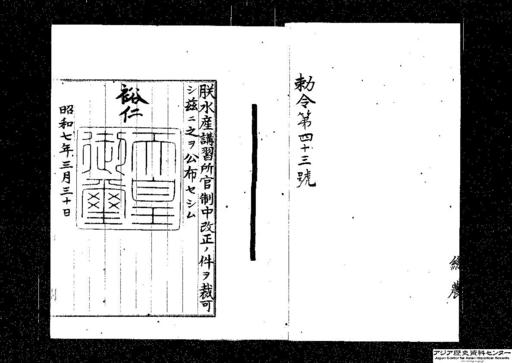 勅令第四十三號
朕水産講習所官制中改正ノ件ヲ裁可
シ茲ニ之ヲ公布セシム
裕仁
天皇
御璽
昭和七年三月三十日
アジア歴史資料センター
Japan Center for Asian Historical Records